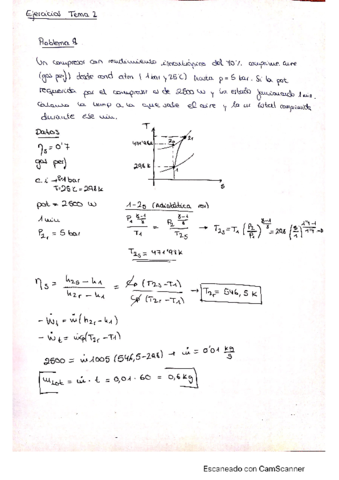 Ejercicios Tema 2
Problema 8
Un compresor con rendimiento isentrópico del 70% comprime aire
(gas perf) desde cond atm (1 bar y 25°C) hasta p = 5 bar. Si la pot
requerida por el compresor es de 2500 W y ha estado funcionando 1 min.
Calcula la temp a la que sale el aire y la m total comprimida
durante ese min.
Datos
ηs = 0'7
gas perf
c.i P=1 bar
T=25°C=298K
pot = 2500 W
1 min
P2r = 5 bar
T
471'98K
298K
2s
2r
1
s
1-2s (Adiabática rev)
T2s = 471'98K
ηs = (h2s - h1) / (h2r - h1) = (T2s - T1) / (T2r - T1) → T2r = 546,5 K
- Ẇt = ṁ (h2r - h1)
- Ẇt = ṁ cp (T2r - T1)
2500 = ṁ 1005 (546,5 - 298) → ṁ = 0'01 kg/s
mtot = ṁ · t = 0,01 · 60 = 0,6 kg
Escaneado con CamScanner